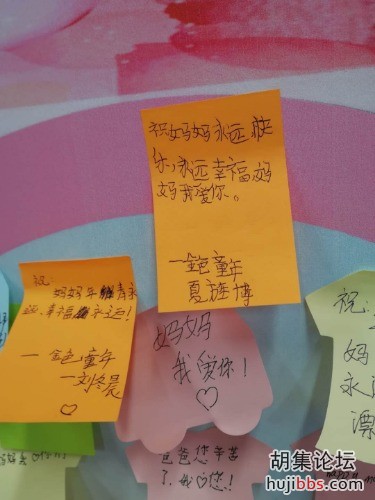 祝妈妈永远快
乐,永远幸福,妈
妈我爱你。
一金色童年
祝:
妈妈年
幸福永远!
一金色童年
一刘冬晨
♡
妈妈
我爱你!
♡
祝:
妈
永
漂
爸爸您辛苦
了,我♡您!
胡集论坛
hujibbs.com